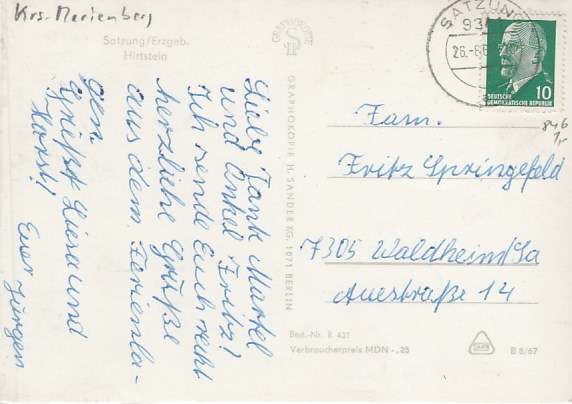 Krs. Marienberg
Satzung/Erzgeb.
Hirtstein
Liebe Tante Martel
und Onkel Fritz!
Ich sende Euch recht
herzliche Grüße
aus dem Ferienla-
ger.
Grüßt Liesa und
Horst!
Euer Jürgen
GRAPHOKOPIE
GRAPHOKOPIE H. SANDER KG, 1071 BERLIN
SATZUNG
934
26.-6.6
10
DEUTSCHE
DEMOKRATISCHE REPUBLIK
846
Fam.
Fritz Springefeld
7305 Waldheim/Sa
Auestraße 14
Best.-Nr. R 421
Verbraucherpreis MDN -,25
B 8/67